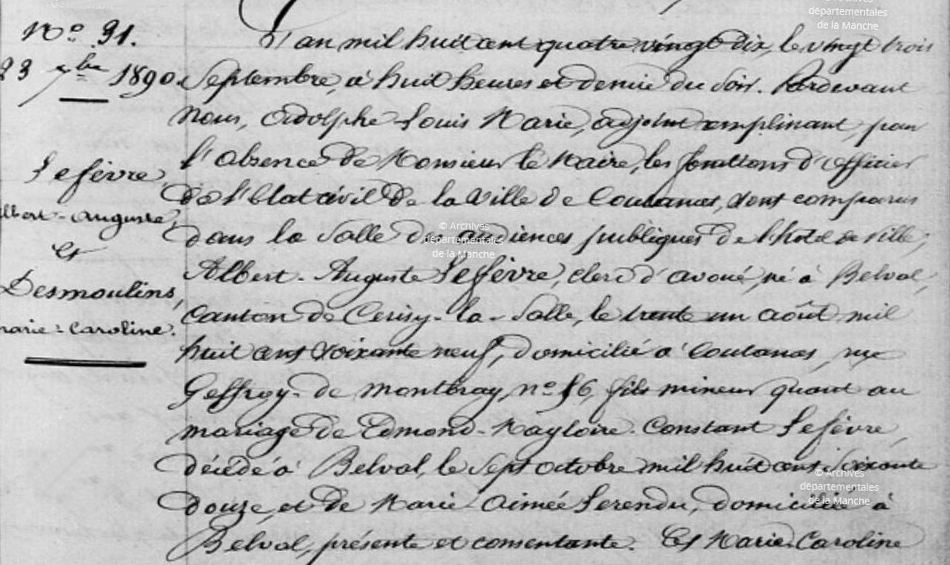 N° 91.
23 7bre 1890.
Lefèvre
Albert-Auguste,
et
Desmoulins,
marie-Caroline.
L'an mil huit cent quatre vingt dix, le vingt trois
Septembre, à huit heures et demie du soir. Pardevant
nous, Adolphe Louis Marie, adjoint remplissant par
l'absence de Monsieur le Maire, les fonctions d'officier
de l'Etat civil de la Ville de Coutances, sont comparus
dans la Salle des audiences publiques de l'hôtel de ville,
Albert-Auguste Lefèvre, clerc d'avoué, né à Belval,
Canton de Cerisy-la-Salle, le trente un août mil
huit cent soixante neuf, domicilié à Coutances, rue
Geffroy-de montbray, n° 86, fils mineur quant au
mariage de Edmond-Magloire-Constant Lefèvre,
décédé à Belval, le sept octobre mil huit cent soixante
douze, et de Marie-Aimée Serendu, domiciliée à
Belval, présente et consentante. Et Marie-Caroline
© Archives
départementales
de la Manche
départementales
de la Manche
© Archives
départementales
de la Manche